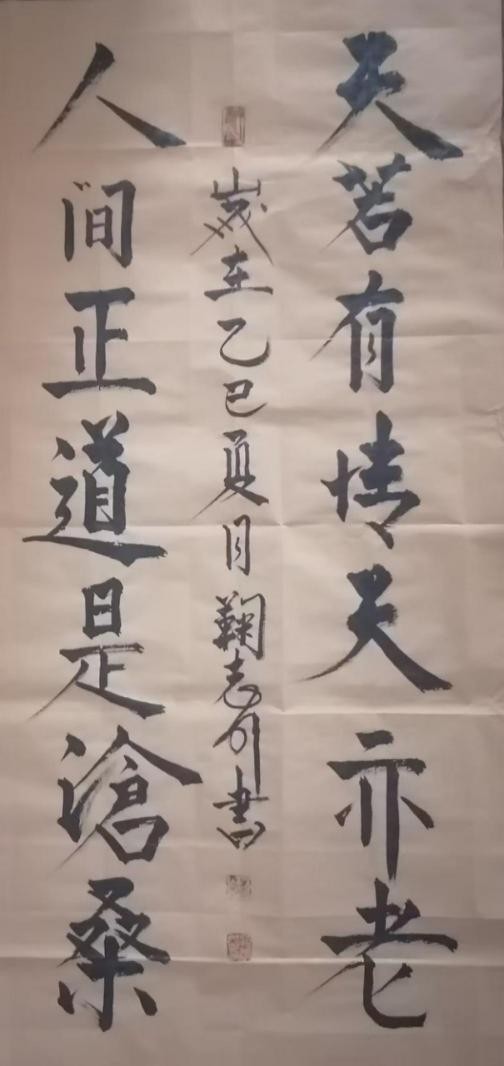 天若有情天亦老
人间正道是滄桑
歲在乙巳夏月鞠志刚書